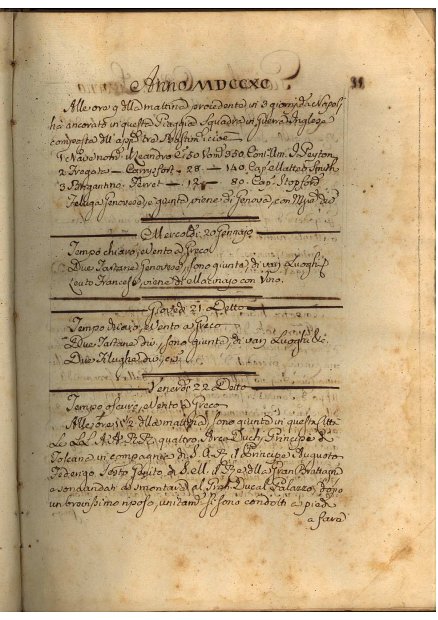 Anno MDCCXC
39
Alle ore 9 della mattina procedente in 3 giorni da Napoli
ha ancorato in questa Spiaggia Squadra di Guerra Inglese
composta dell'app.e tre Bastim.ti cioè
1 Nave nom. il Leandro C. 50 Uom. 350 Com. Um. J. Peyton
2 Fregata — Carrysfort — 28 — 140 Cap. Matteo Smith
3 Brigantino Ferret — 12 — 80 Cap. Stopford
Feluga Genovese è giunta, viene di Genova, con
Mercoldì 20 Gennajo
Tempo chiaro, e Vento a Greco
Due Tartane Genovese, sono giunte di varj Luoghi
Leuto Francese, viene del Macinajo con Vino.
Giovedì 21. Detto
Tempo dicaro, e Vento a Greco
Due Tartane div.e, sono giunte di varj Luoghi &c.
Due Filughe div.e, &c.
Venerdì 22 Detto
Tempo oscuro, e Vento a Greco
Alle ore 1/2 della mattina sono giunti in questa Città
Le LL. AA. RR. quattro Arciduchi Principi di
Toscana in compagnia di S. A. R. il Principe Augusto
Federigo Sesto Genito di S. M. il Re della Gran Brettagna
e sono andati a smontare al Real Ducal Palazzo, dopo
un brevissimo riposo, unitam.e si sono condotti a piedi
a fare